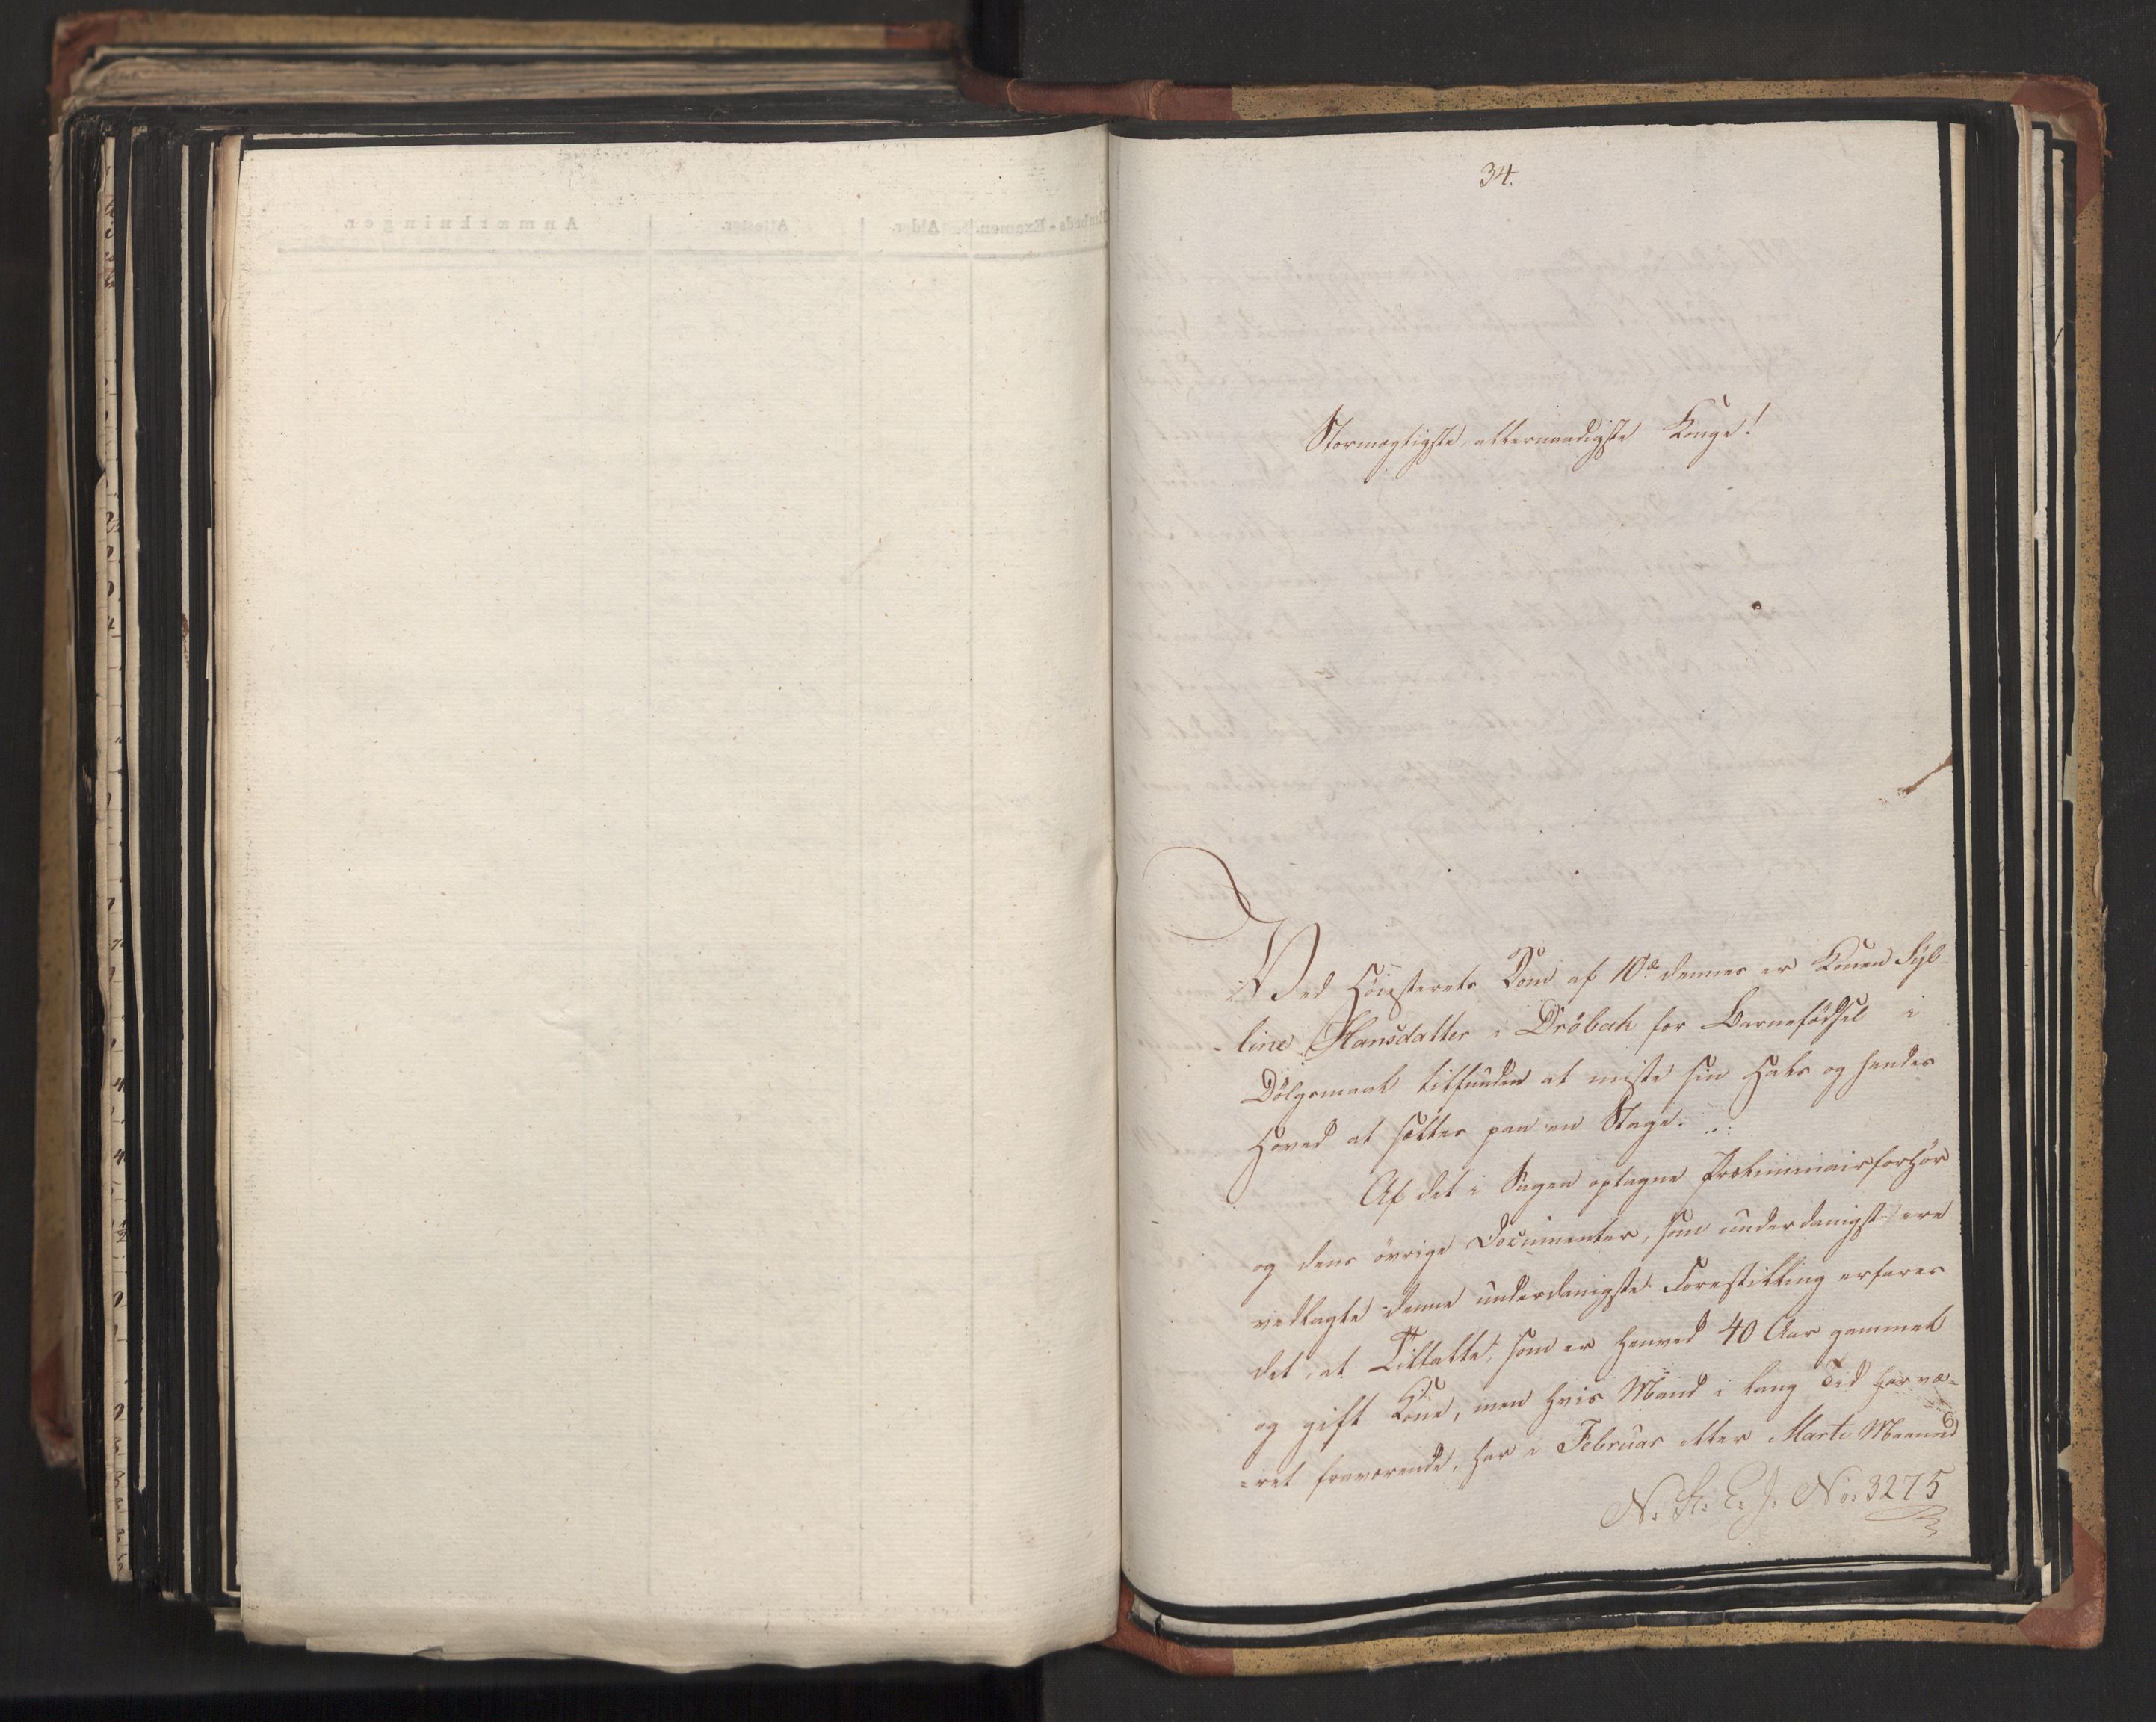 34.
Stormægtigste, allernaadigste Konge!
Ved Høiesterets Dom af 10de dennes er Konen Syb-
-line Hansdatter i Drøbak for Barnefødsel i
Dølgsmaal tilfunden at miste sin Hals og hendes
Hoved at sættes paa en Stage.
Af det i Sagen optagne Præliminairforhør
og dens øvrige Documenter, som underdanigst ere
vedlagte denne underdanigste Forestilling erfares
det, at Tiltalte, som er henved 40 Aar gammel
og gift Kone, men hvis Mand i lang Tid har væ-
-ret fraværende, har i Februar eller Marti Maaned
N: R: C: J: No: 3275
Anmærkninger.
Attester.
Alder.
Embeds-Examen.